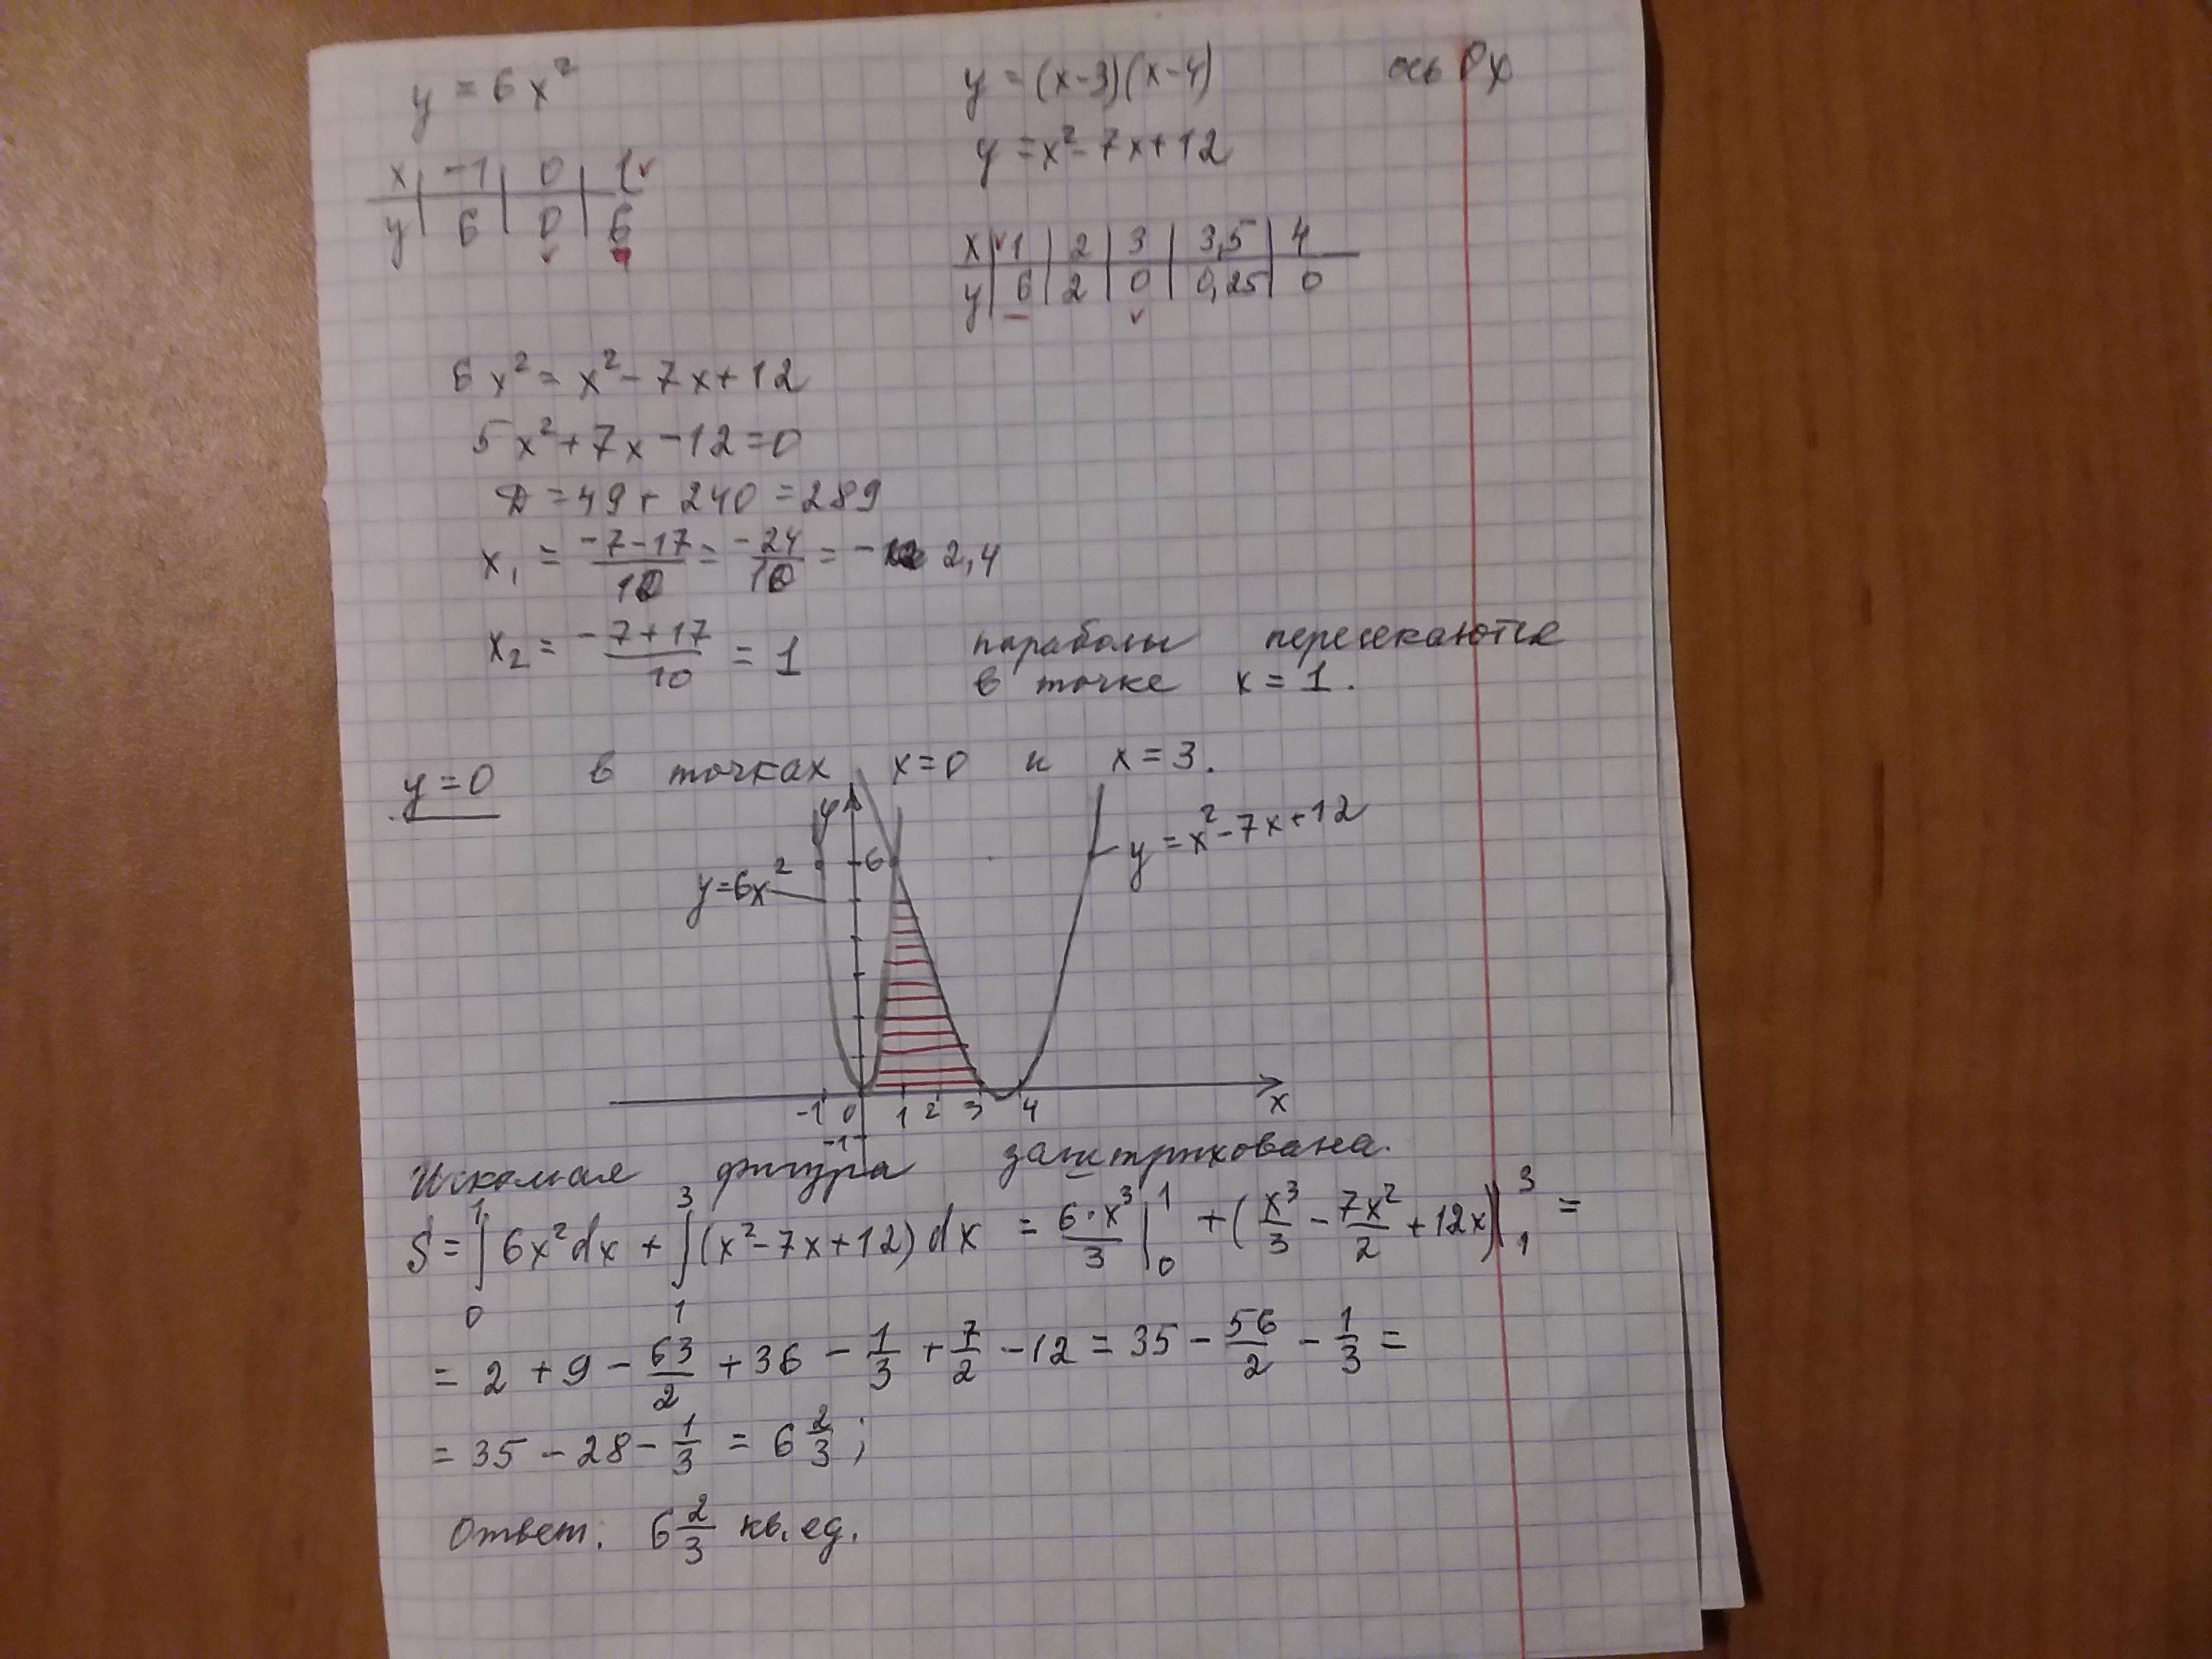 y = 6x²
y = (x-3)(x-4)
ось Ox
y = x² - 7x + 12
x | -1 | 0 | 1
y | 6 | 0 | 6
x | 1 | 2 | 3 | 3,5 | 4
y | 6 | 2 | 0 | 0,25 | 0
6x² = x² - 7x + 12
5x² + 7x - 12 = 0
D = 49 + 240 = 289
x₁ = (-7-17)/10 = -24/10 = - 2,4
x₂ = (-7+17)/10 = 1
параболы пересекаются
в точке x = 1.
y = 0 в точках x = 0 и x = 3.
y
6
y = 6x²
y = x² - 7x + 12
-1 0 1 2 3 4 x
-1
Искомая фигура заштрихована.
S = ∫₀¹ 6x² dx + ∫₁³ (x² - 7x + 12) dx = 6·x³/3 |₀¹ + (x³/3 - 7x²/2 + 12x)|₁³ =
= 2 + 9 - 63/2 + 36 - 1/3 + 7/2 - 12 = 35 - 56/2 - 1/3 =
= 35 - 28 - 1/3 = 6 2/3;
Ответ. 6 2/3 кв. ед.